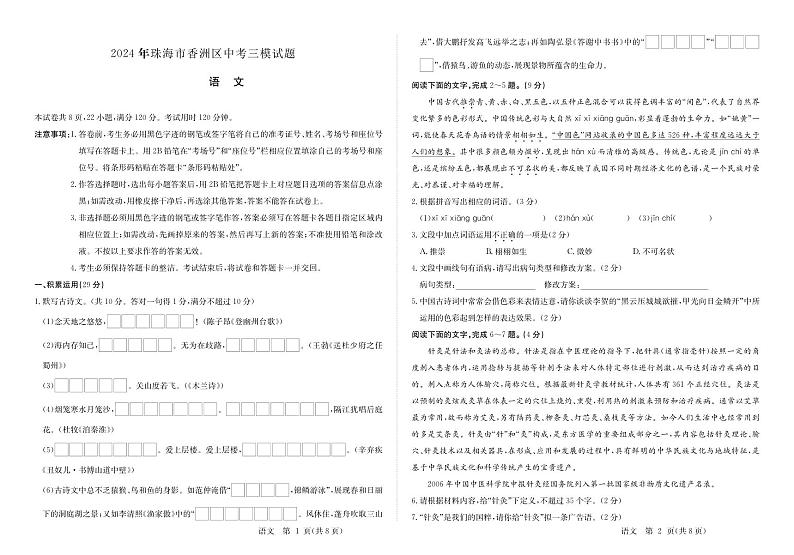 2024 年珠海市香洲区中考三模试题
语 文
本试卷共 8 页,22 小题,满分 120 分。考试用时 120 分钟。
注意事项:1. 答卷前,考生务必用黑色字迹的钢笔或签字笔将自己的准考证号、姓名、考场号和座位号
填写在答题卡上。用 2B 铅笔在“考场号”和“座位号”栏相应位置填涂自己的考场号和座
位号。将条形码粘贴在答题卡“条形码粘贴处”。
2. 作答选择题时,选出每小题答案后,用 2B 铅笔把答题卡上对应题目选项的答案信息点涂
黑;如需改动,用橡皮擦干净后,再选涂其他答案,答案不能答在试卷上。
3. 非选择题必须用黑色字迹的钢笔或签字笔作答,答案必须写在答题卡各题目指定区域内
相应位置上;如需改动,先画掉原来的答案,然后再写上新的答案;不准使用铅笔和涂改
液。不按以上要求作答的答案无效。
4. 考生必须保持答题卡的整洁。考试结束后,将试卷和答题卡一并交回。
一、积累运用(29 分)
1. 默写古诗文。(共 10 分。答对一句得 1 分,满分不超过 10 分)
(1)念天地之悠悠,□□□□□□□!(陈子昂《登幽州台歌》)
(2)海内存知己,□□□□□。无为在歧路,□□□□□。(王勃《送杜少府之任
蜀州》)
(3)□□□□□,关山度若飞。(《木兰诗》)
(4)烟笼寒水月笼沙,□□□□□□□。□□□□□□□,隔江犹唱后庭
花。(杜牧《泊秦淮》)
(5)□□□□□□□,爱上层楼。爱上层楼,□□□□□□□。(辛弃疾
《丑奴儿·书博山道中壁》)
(6)古诗文中总不乏猿猴、鸟和鱼的身影。如范仲淹借“□□□□,锦鳞游泳”,展现春和日丽
下的洞庭湖之景;又如李清照《渔家傲》中的“□□□□□□□。风休住,蓬舟吹取三山
语文 第 1 页(共 8 页)
去”,借大鹏抒发高飞远举之志;再如陶弘景《答谢中书书》中的“□□□□,□□□□
”,借猿鸟、游鱼的动态,展现景物所蕴含的生命力。
阅读下面的文字,完成 2～5 题。(9 分)
中国古代推崇青、黄、赤、白、黑五色,以五种正色混合可以获得色调丰富的“间色”,代表了自然界
变化繁多的色彩形式。中国传统色彩与大自然 xī xī xiāng guān,彰显着蓬勃的生命力。如“姚黄”一
词,能使春天花香鸟语的情景栩栩如生。“中国色”网站收录的中国色多达 526 种,丰富程度远远大于
人们的想象。其中很多颜色颇为微妙,呈现出 hán xù 而清雅的高级感。传统色,无论是 jīn chí 的单
色,还是缤纷五色,都展现出不可名状的美,都反映了我国不同时期经济文化的色谱,是一个民族对荣
光、对恭谨、对幸福的理解。
2. 根据拼音写出相应的词语。(3 分)
(1)xī xī xiāng guān( ) (2)hán xù( ) (3)jīn chí( )
3. 文段中加点词语运用不正确的一项是(2 分)
A. 推崇 B. 栩栩如生 C. 微妙 D. 不可名状
4. 文段中画线句有语病,请写出病句类型和修改方案。(2 分)
病句类型: 修改方案:
5. 中国古诗词中常常会借色彩来表情达意,请你谈谈李贺的“黑云压城城欲摧,甲光向日金鳞开”中所
运用的色彩起到怎样的表达效果。(2 分)
阅读下面的文字,完成 6～7 题。(4 分)
针灸是针法和灸法的总称。针法是指在中医理论的指导下,把针具(通常指毫针)按照一定的角
度刺入患者体内,运用捻转与提插等针刺手法来对人体特定部位进行刺激,从而达到治疗疾病的目
的。刺入点称为人体腧穴,简称穴位。根据最新针灸学教材统计,人体共有 361 个正经穴位。灸法是
以预制的灸炷或灸草在体表一定的穴位上烧灼、熏熨,利用热的刺激来预防和治疗疾病。通常以艾草
最为常用,故而称为艾灸,另有隔药灸、柳条灸、灯芯灸、桑枝灸等方法。如今人们生活中也经常用到
的多是艾条灸。针灸由“针”和“灸”构成,是东方医学的重要组成部分之一,其内容包括针灸理论、腧
穴、针灸技术以及相关器具,在形成、应用和发展的过程中,具有鲜明的中华民族文化与地域特征,是
基于中华民族文化和科学传统产生的宝贵遗产。
2006 年中国中医科学院申报针灸经国务院列入第一批国家级非物质文化遗产名录。
6. 请根据材料内容,给“针灸”下定义,不超过 35 个字。(2 分)
7. “针灸”是我们的国粹,请你给“针灸”拟一条广告语。(2 分)
语文 第 2 页(共 8 页)